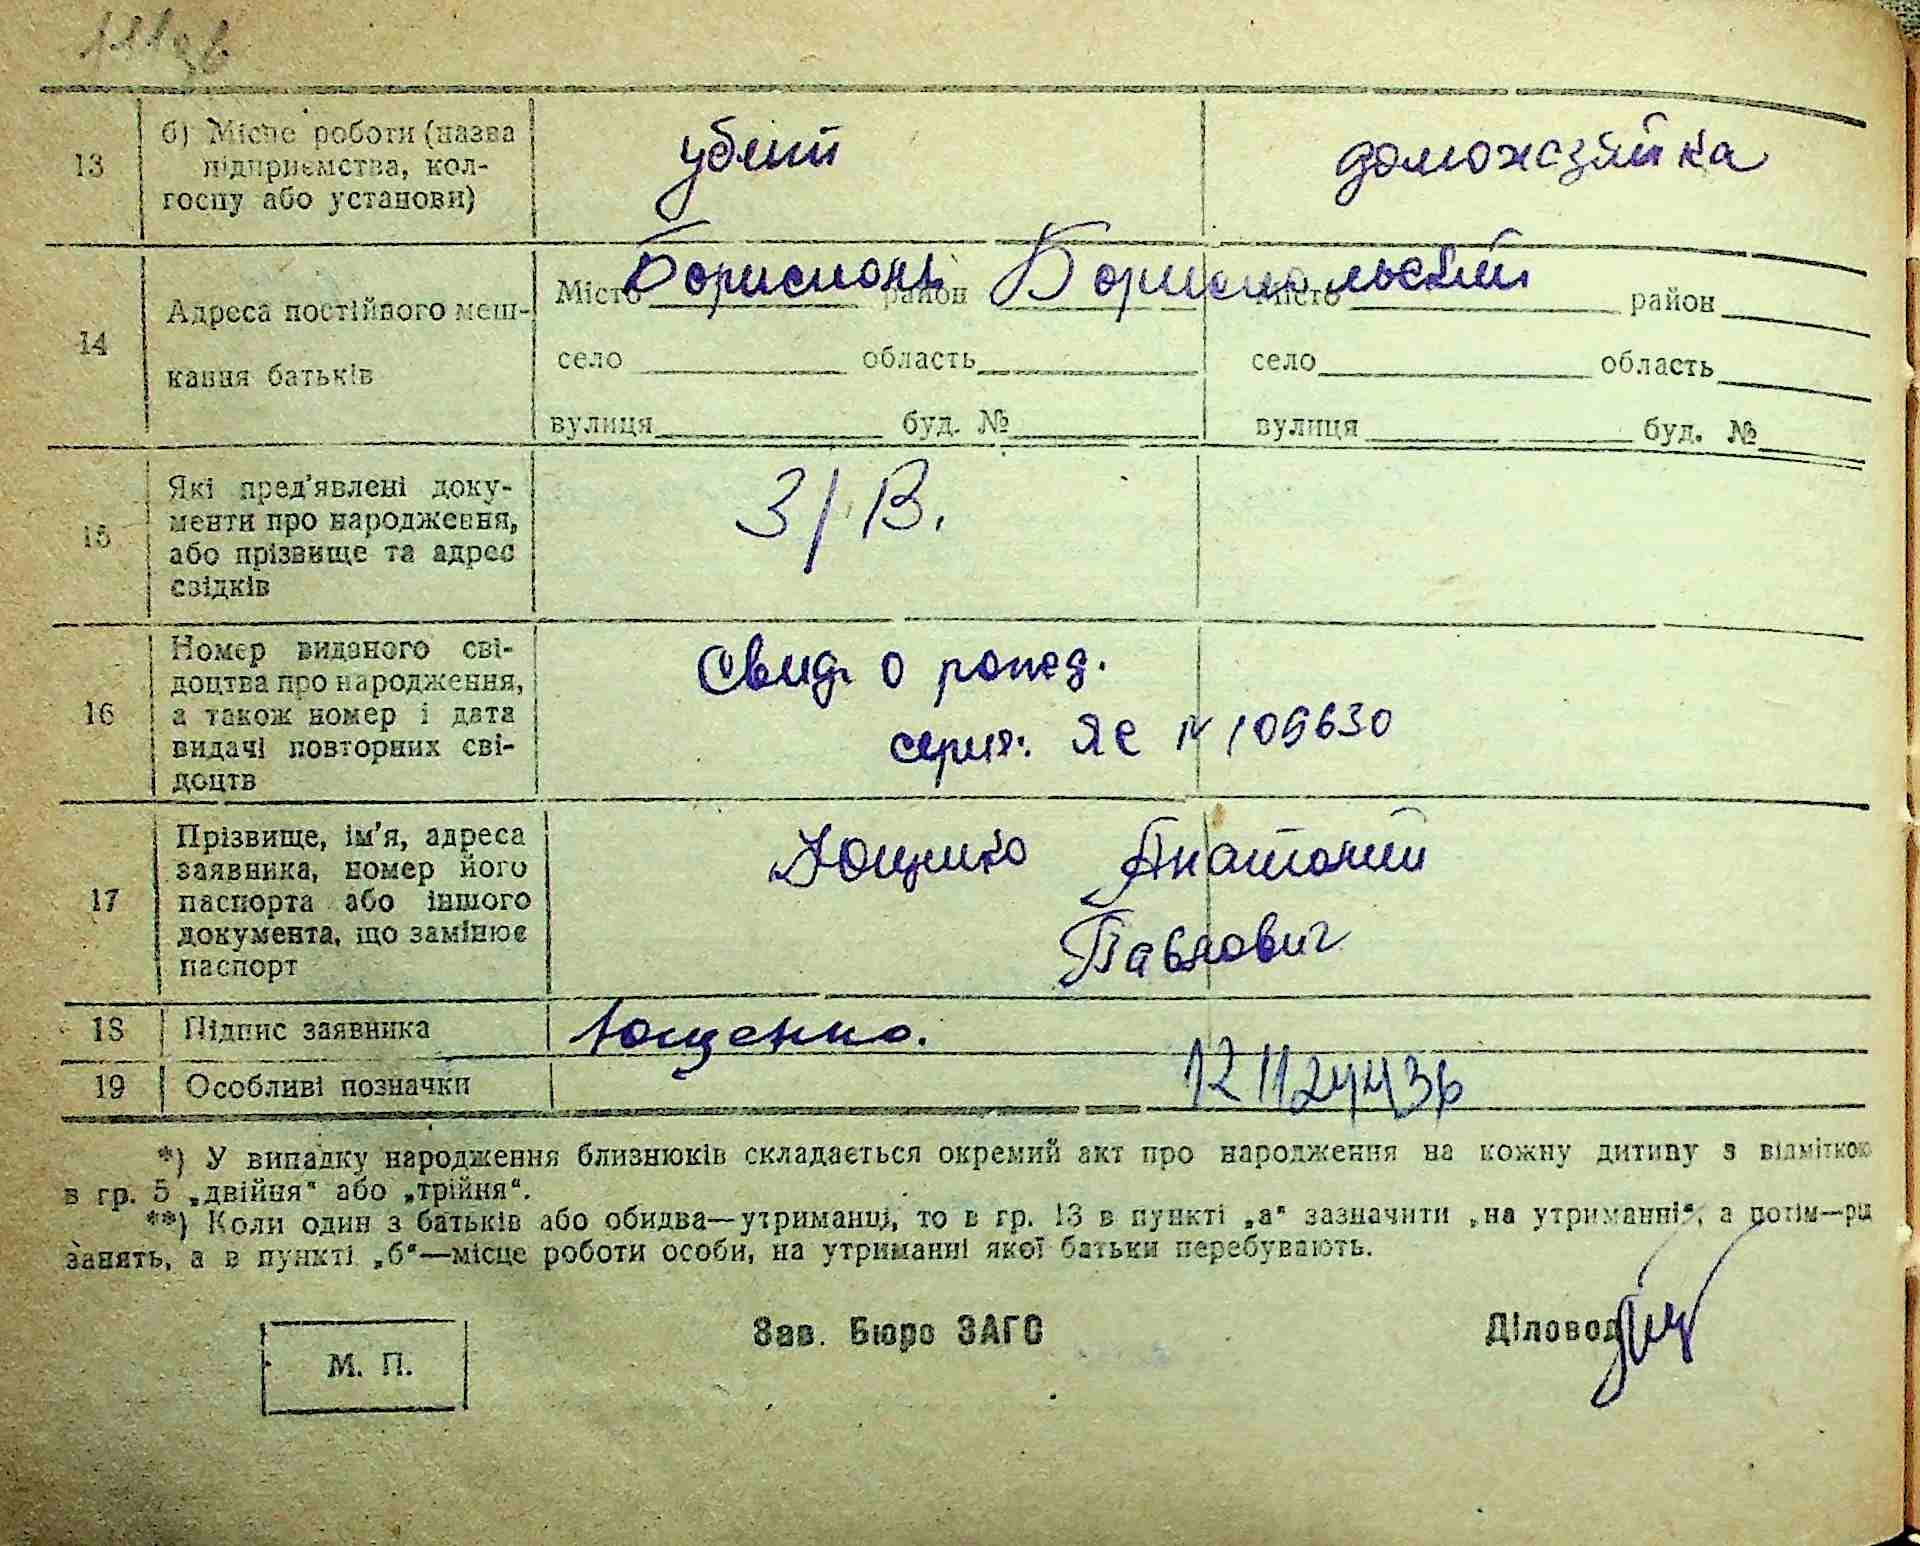 13
б) Місце роботи (назва
підприємства, кол-
госпу або установи)
убит
домохозяйка
14
Адреса постійного меш-
кання батьків
Місто Борисполь район Бориспольский
Місто район
село область
село область
вулиця буд. №
вулиця буд. №
15
Які пред'явлені доку-
менти про народження,
або прізвище та адрес
свідків
З/В.
16
Номер виданого сві-
доцтва про народження,
а також номер і дата
видачі повторних сві-
доцтв
Свид. о рожд.
серия: ЯС N 109630
17
Прізвище, ім'я, адреса
заявника, номер його
паспорта або іншого
документа, що замінює
паспорт
Ющенко Анатолий
Павлович
18
Підпис заявника
Ющенко.
19
Особливі позначки
*) У випадку народження близнюків складається окремий акт про народження на кожну дитину з відміткою
в гр. 5 „двійня“ або „трійня“.
**) Коли один з батьків або обидва—утриманці, то в гр. 13 в пункті „а“ зазначити „на утриманні“, а потім—рід
занять, а в пункті „б“—місце роботи особи, на утриманні якої батьки перебувають.
М. П.
Зав. Бюро ЗАГС
Діловод